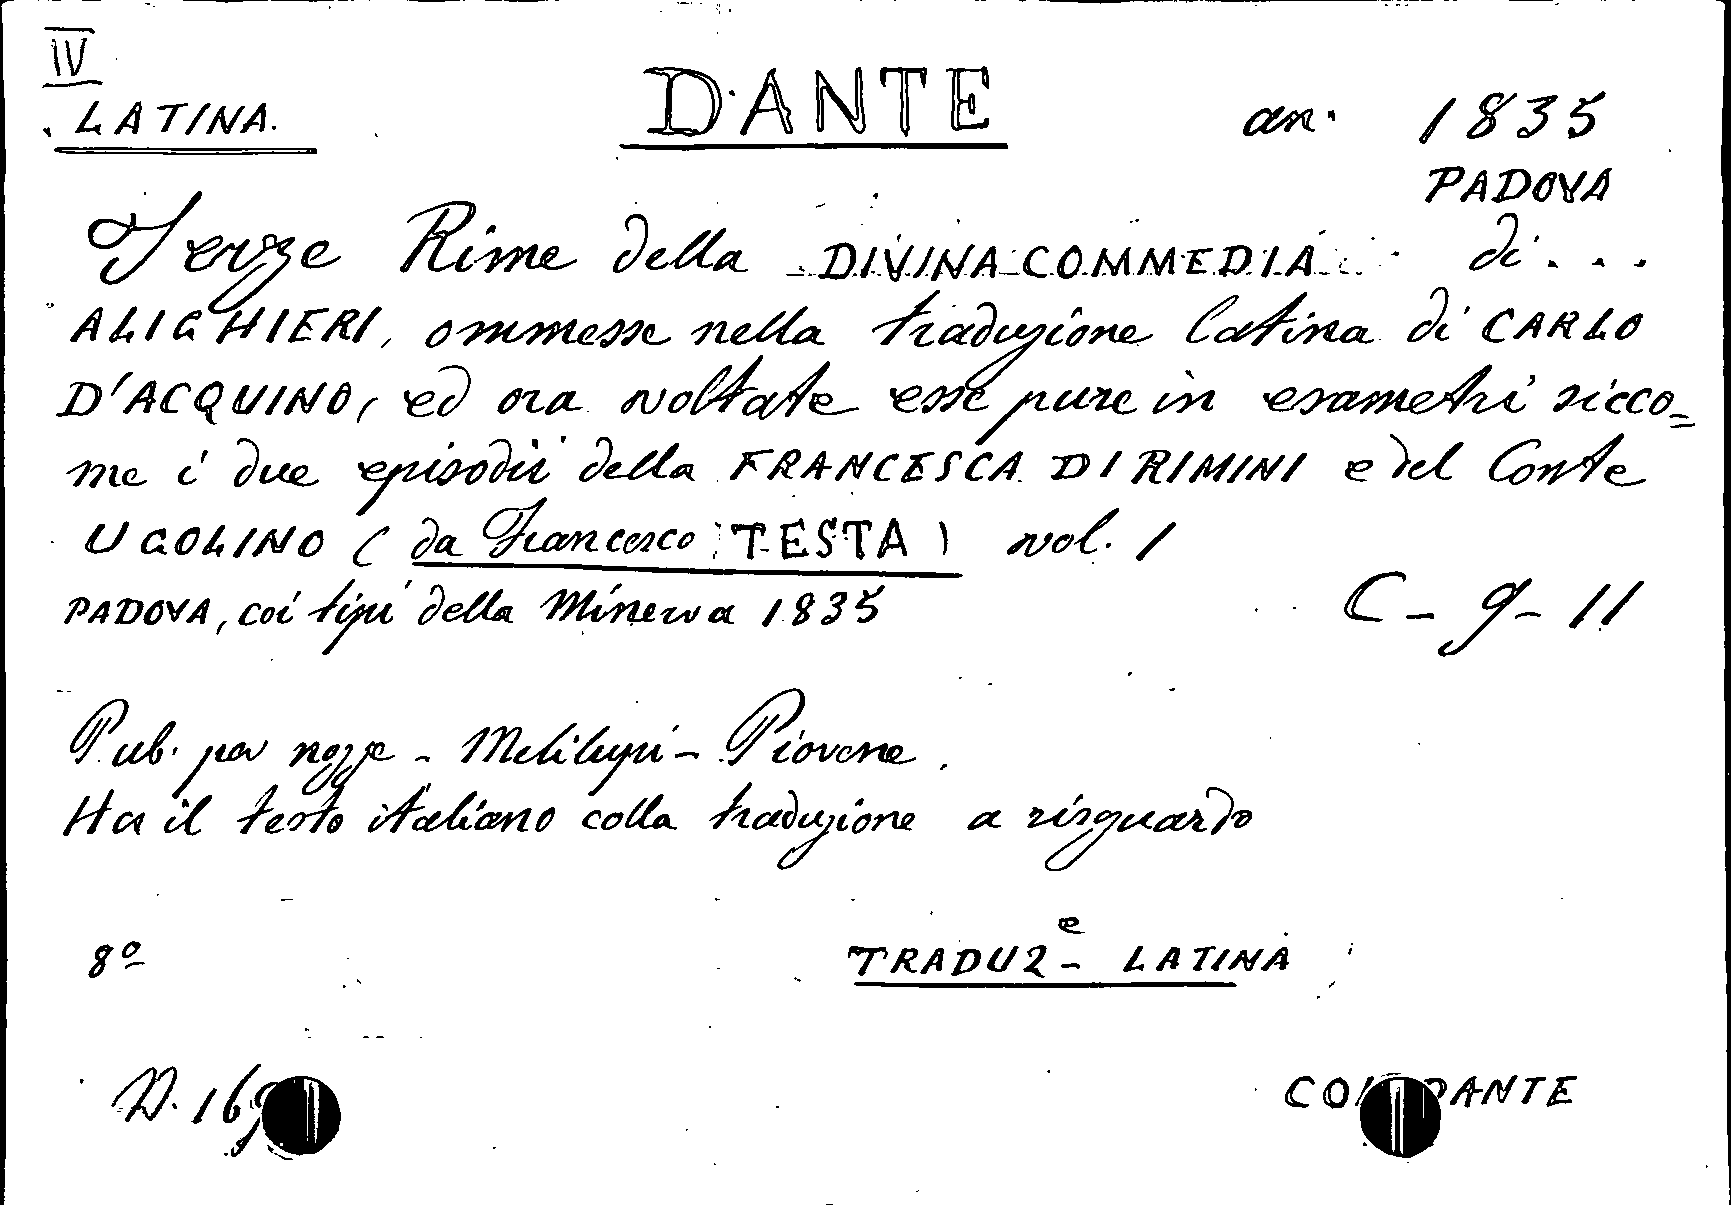 IV
LATINA.
DANTE
an. 1835
PADOVA
Terze Rime della DIVINA COMMEDIA di...
ALIGHIERI, ommesse nella traduzione latina di CARLO
D'ACQUINO, ed ora voltate esse pure in esametri sicco=
me i due episodii della FRANCESCA DI RIMINI e del Conte
UGOLINO (da Francesco TESTA) vol. 1
PADOVA, coi tipi della Minerva 1835
C-9-11
Pub. per nozze - Melilupi - Piovene.
Ha il testo italiano colla traduzione a risguardo
8º
TRADUZe LATINA
DANTE